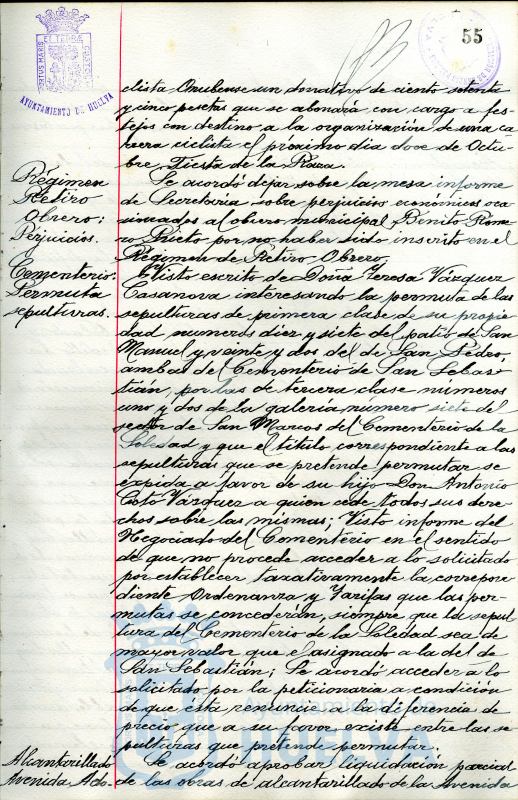 55
PORTUS MARIS ET TERRAE CUSTODIA
AYUNTAMIENTO DE HUELVA
clista Onubense un donativo de ciento setenta
y cinco pesetas que se abonará con cargo a fes-
tejos con destino a la organización de una ca-
rrera ciclista el próximo día doce de Octu-
bre, Fiesta de la Raza.
Régimen
Retiro
Obrero:
Perjuicios.
Se acordó dejar sobre la mesa informe
de Secretaría sobre perjuicios económicos oca-
sionados al obrero municipal Benito Rome-
ro Prieto por no haber sido inscrito en el
Régimen de Retiro Obrero.
Cementerio:
Permuta
sepulturas.
Visto escrito de Doña Teresa Vázquez
Casanova interesando la permuta de las
sepulturas de primera clase de su propie-
dad, números diez y siete del patio de San
Manuel y veinte y dos del de San Pedro,
ambas del Cementerio de San Sebas-
tián, por las de tercera clase números
uno y dos de la galería número siete del
sector de San Marcos del Cementerio de la
Soledad y que el título correspondiente a las
sepulturas que se pretende permutar se
expida a favor de su hijo Don Antonio
Coto Vázquez a quien cede todos sus dere-
chos sobre las mismas; Visto informe del
Negociado del Cementerio en el sentido
de que no procede acceder a lo solicitado
por establecer taxativamente la correspon-
diente Ordenanza y Tarifas que las per-
mutas se concederán, siempre que la sepul-
tura del Cementerio de la Soledad sea de
mayor valor que el asignado a la del de
San Sebastián; Se acordó acceder a lo
solicitado por la peticionaria a condición
de que ésta renuncie a la diferencia de
precio que a su favor existe entre las se-
pulturas que pretende permutar.
Alcantarillado
Avenida Ado-
Se acordó aprobar liquidación parcial
de las obras de alcantarillado de la Avenida
Ayuntamiento de
HUELVA